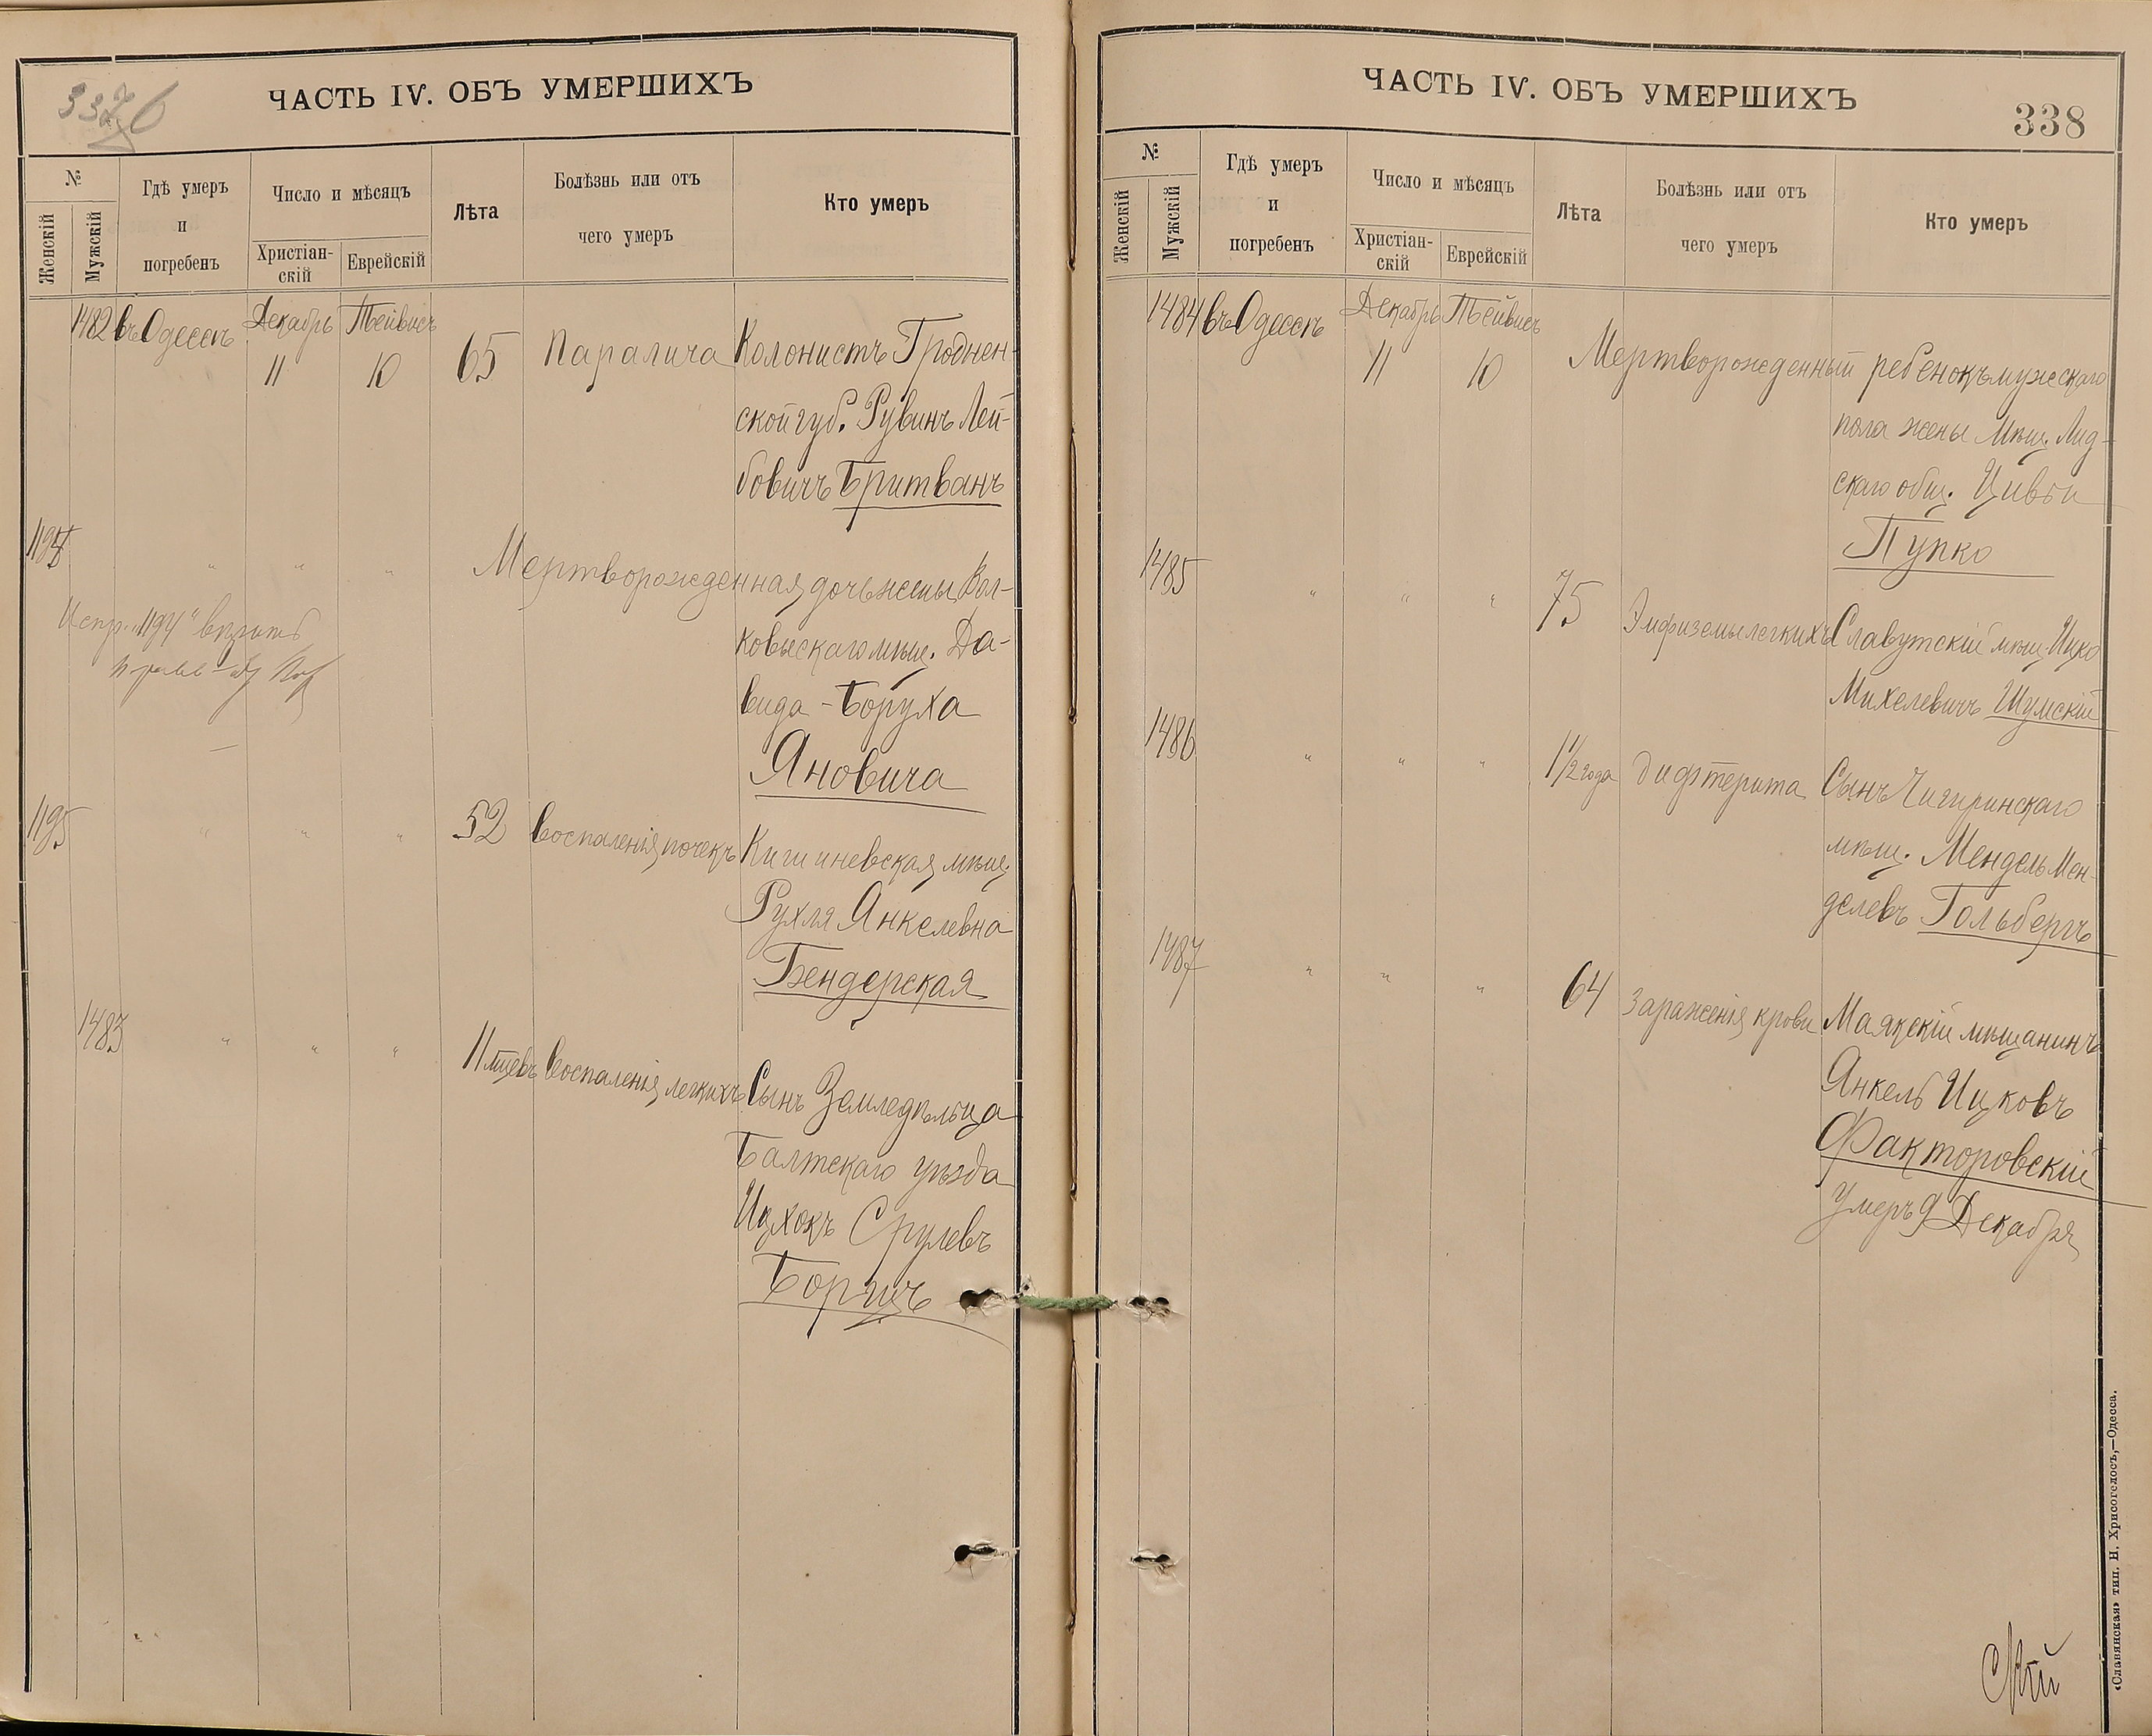 ЧАСТЬ IV. ОБЪ УМЕРШИХЪ
№
Женскій
Мужскій
Гдѣ умеръ
и
погребенъ
Число и мѣсяцъ
Христіан-
скій
Еврейскій
Лѣта
Болѣзнь или отъ
чего умеръ
Кто умеръ
1482 въ Одессѣ Декабрь Тейвисъ
11 10 65 Паралича Колонистъ Гроднен-
ской губ. Рувинъ Лей-
бовичъ Бритванъ
1194 " " " Мертворожденная дочь жены Вол-
ковыскаго мѣщ. Да-
вида-Боруха
Яновича
Испр. "1194" вѣрить
1195 " " " 52 Воспаленія почекъ Кишиневская мѣщ.
Рухля Янкелевна
Бендерская
1483 " " " 11 мцевъ Воспаленія легкихъ Сынъ Земледѣльца
Балтскаго уѣзда
Ицхокъ Срулевъ
Борщъ
ЧАСТЬ IV. ОБЪ УМЕРШИХЪ
338
№
Женскій
Мужскій
Гдѣ умеръ
и
погребенъ
Число и мѣсяцъ
Христіан-
скій
Еврейскій
Лѣта
Болѣзнь или отъ
чего умеръ
Кто умеръ
1484 въ Одессѣ Декабрь Тейвисъ
11 10 Мертворожденный ребенокъ мужескаго
пола жены Мѣщ. Лид-
скаго общ. Цивьи
Пупко
1485 " " " 75 Эмфиземы легкихъ Славутскій мѣщ. Ицко
Михелевичъ Шумскій
1486 " " " 1 1/2 года Дифтерита Сынъ Чигиринскаго
мѣщ. Мендель Мен-
делевъ Гольбергъ
1487 " " " 64 Зараженія крови Маякскій мѣщанинъ
Янкель Ицковъ
Факторовскій
Умеръ 9 Декабря
«Славянская» тип. Н. Хрисогелосъ,—Одесса.